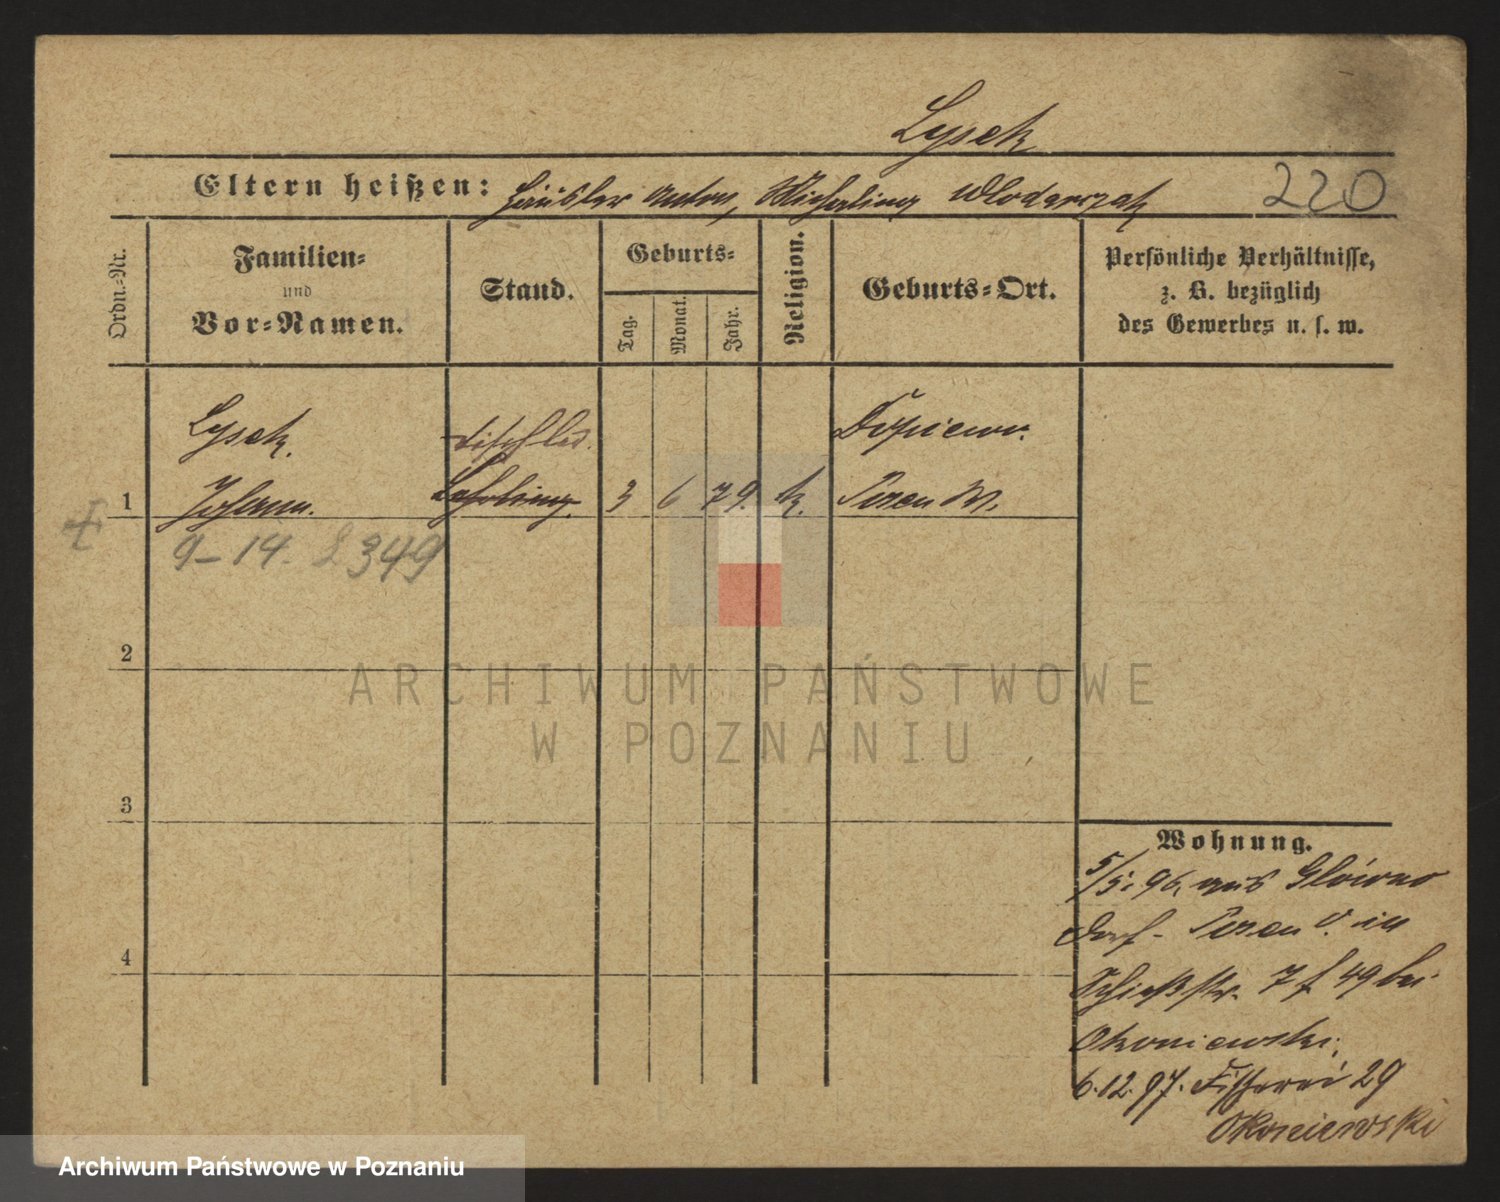 Lysek
Eltern heißen: Häusler Anton, Michalina Wlodarczak 220
Ordn.-Nr.
Familien-
und
Vor-Namen.
Stand.
Geburts-
Tag.
Monat.
Jahr.
Religion.
Geburts-Ort.
Persönliche Verhältnisse,
z. B. bezüglich
des Gewerbes u. s. w.
Lysek. Tischler
1 Johann. Lehrling. 3 6 79. k. Posen W.
9-14. 349
2
3
4
Wohnung.
5/5. 96. aus Glowno
Dorf - Posen O. in
Schießstr. 7 f 49 bei
Okoniewski.
6.12.97. Fischerei 29
Okoniewski
ARCHIWUM PAŃSTWOWE
W POZNANIU
Archiwum Państwowe w Poznaniu